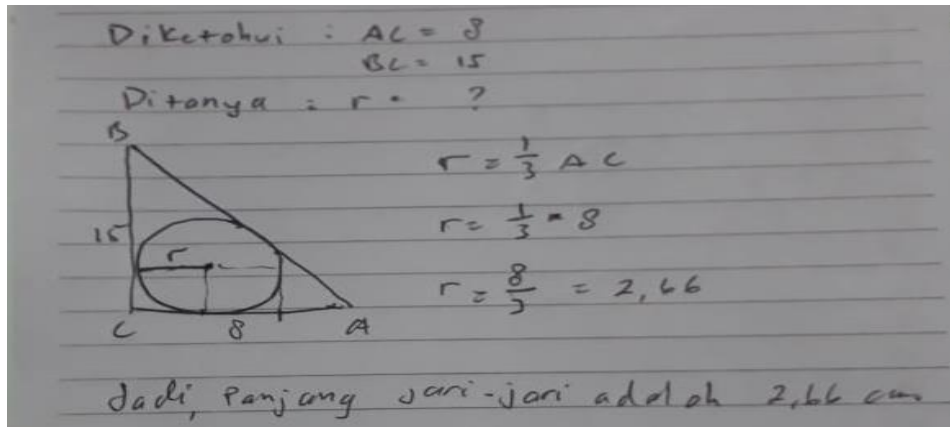 Diketahui : AC = 8
BC = 15
Ditanya : r = ?
B
r = 1/3 AC
15
r
r = 1/3 · 8
r = 8/3 = 2,66
C 8 A
Jadi, Panjang jari-jari adalah 2,66 cm